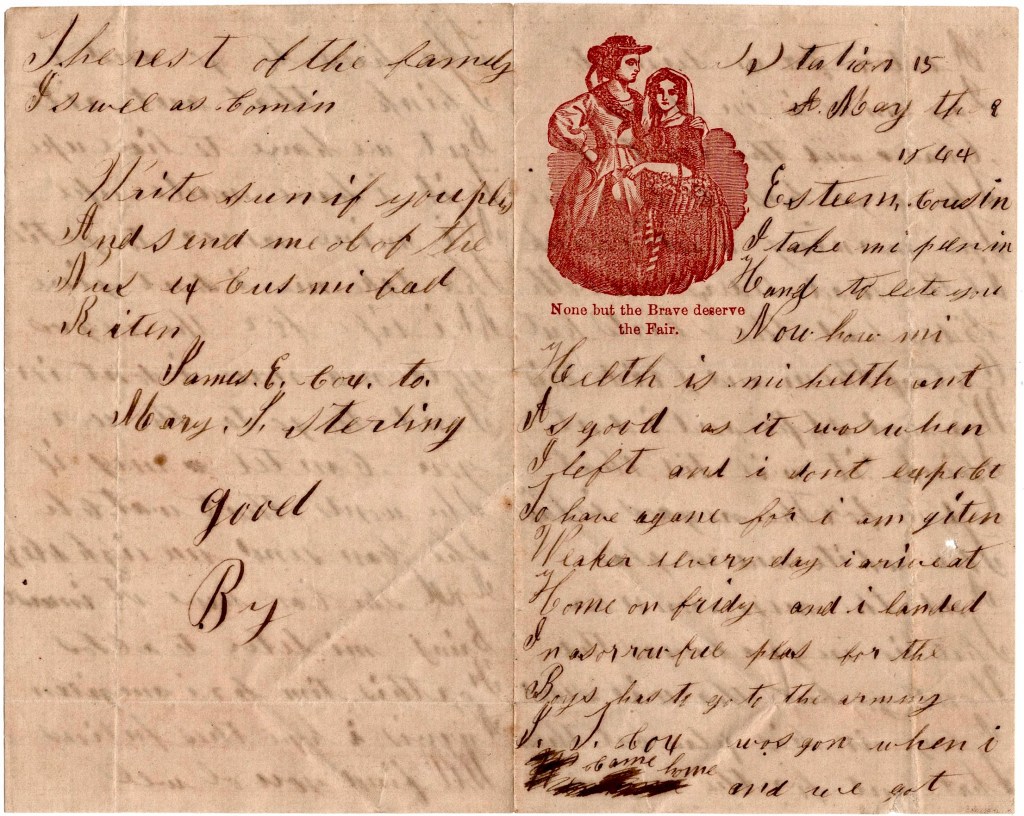 The rest of the family
Is wel as Comin
Write sun if you ples
And send me ol of the
Nus ex Cus mi bad
Riten
James. E. Cox. to.
Mary. S. Sterling
good
By
None but the Brave deserve
the Fair.
Station 15
A. May the 9
1864
Esteem, Cousin
I take mi pen in
Hand to lete you
Now how mi
Helth is mi helth ant
As good as it was when
I left and i dont expebt
To have agane for i am giten
Weaker severy day i arive at
Home on fridy and i landed
In a sorrowful plas for the
Boys has to go to the armey
Cox was gon when i
came home and we got